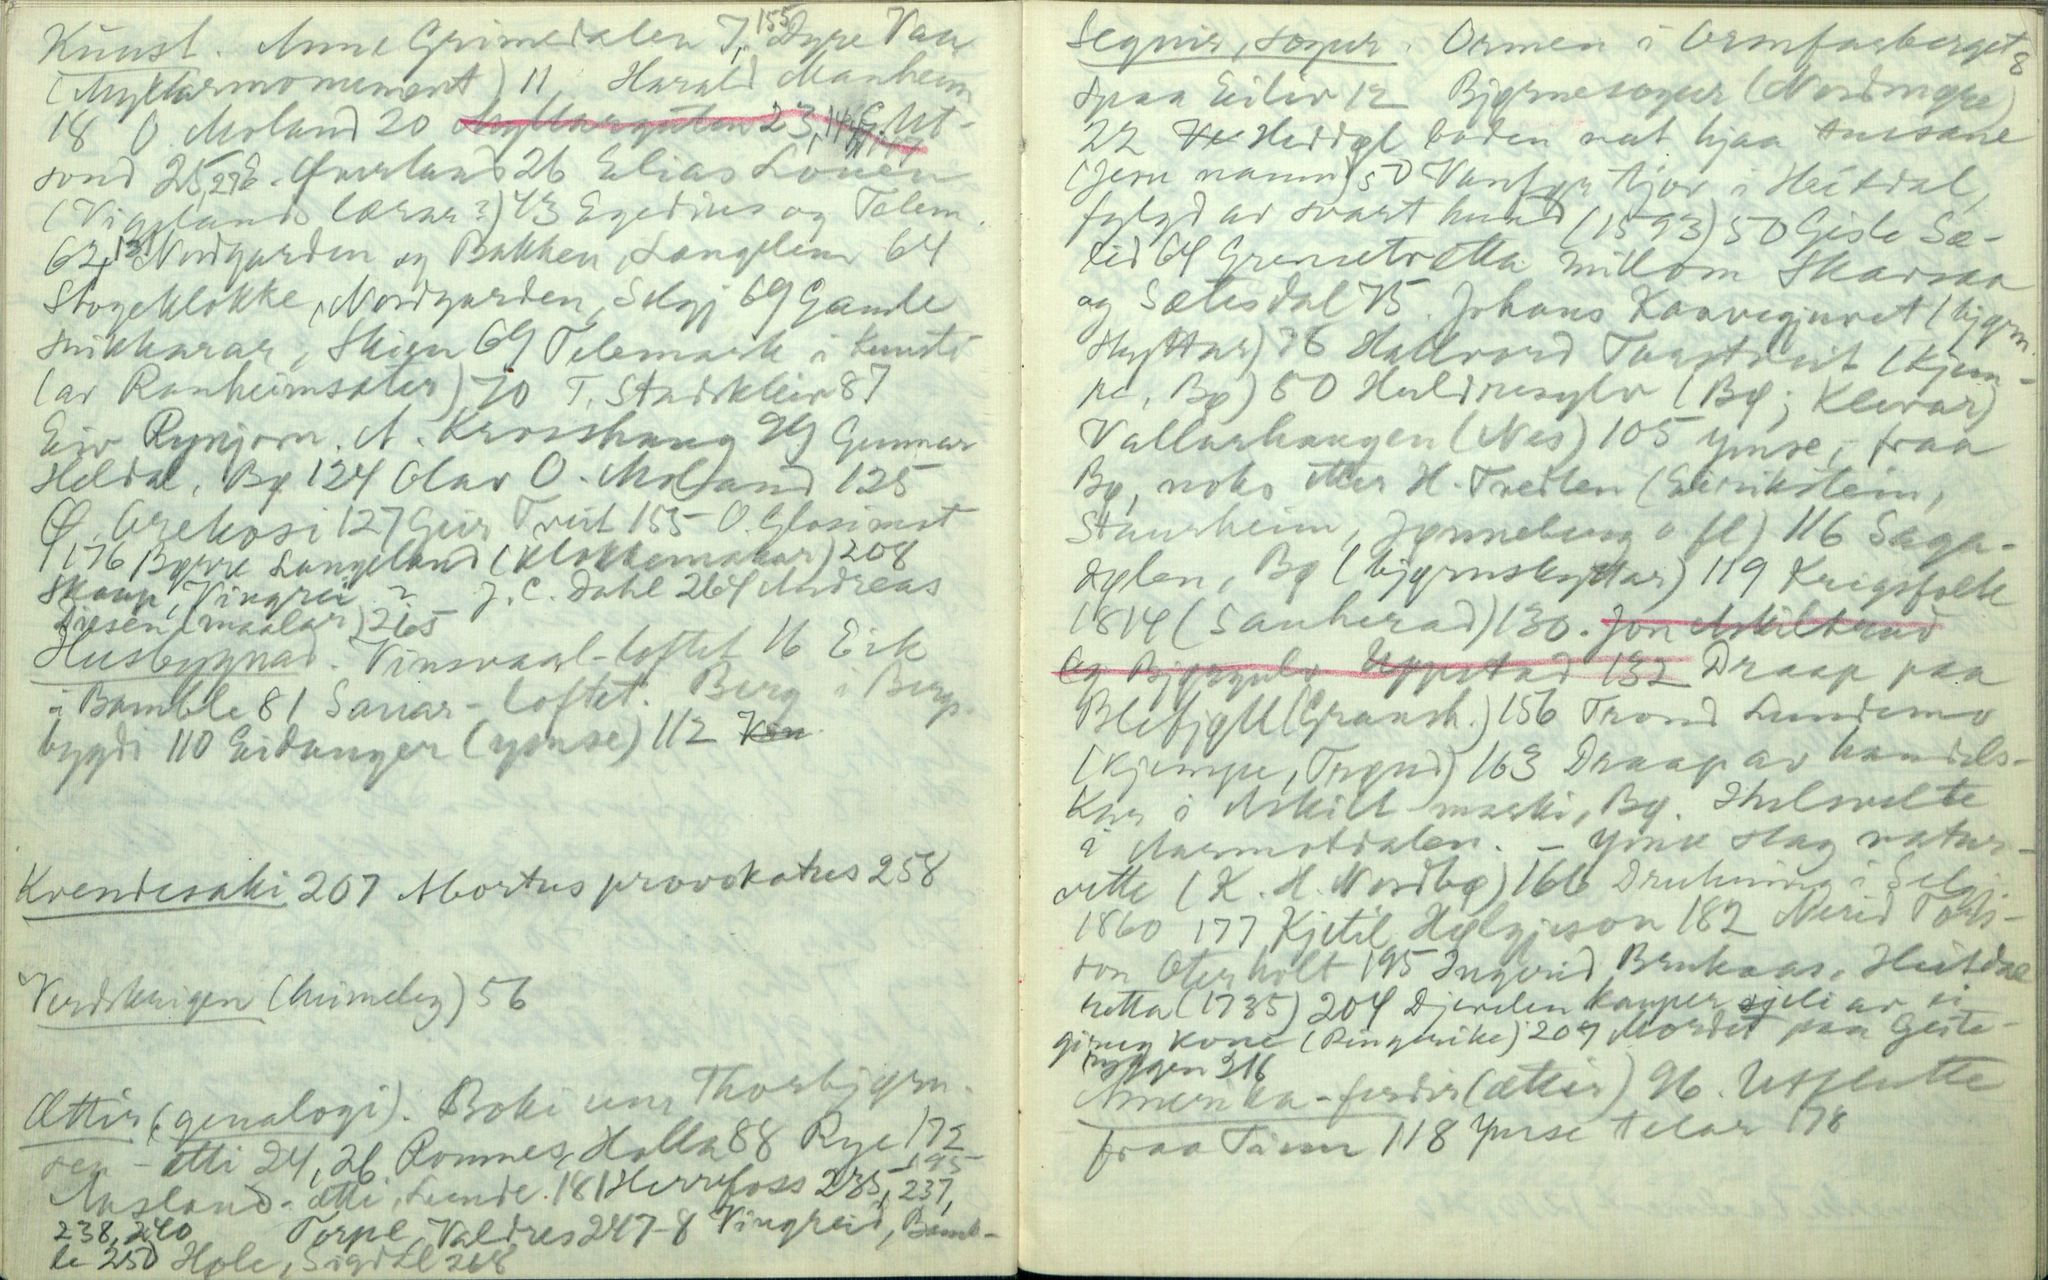 Kunst. Anne Grimedalen 7, 155 Dyre Vaa
(Myllarmonument) 11, Harald Manheim
18 O. Moland 20 Myllarguten 23, G. Ut-
sond 25, 276 Øverland 26 Elias Loven
(Vigelands lærar?) 43 Egedius og Telem.
62, 131 Nordgarden og Bakken, Langlim 64
Stogeklokke, Nordgarden, Selgj 69 Gamle
snikkarar, Skien 69 Telemark i kunsti
(av Ranheimsæter) 70 T. Stadskleiv 87
Eiv Rynjom. A. Kroshaug 99 Gunnar
Heldal, Bø 124 Olav O. Moland 125
Ø. Orekosi 127 Geir Tveit 155 O. Glosimot
176 Børre Langeland (klokkemakar) 208
Skaap, Vingrei ? J. C. Dahl 264 Andreas
Diesen (maalar) 265
Husbygnad. Vinsvaal-loftet 16 Eik
i Bamble 81 Sauar-loftet. Berg i Bergs-
bygdi 110 Eidanger (ymse) 112
Kvendesaki 207 Abortus provokatus 258
Verdskrigen (Krimeleg) 56
Ættir (genalogi). Boki um Thorbjørn-
sen-ætti 24, 26 Rommes, Holla 88 Rye 172
195
Aasland-ætti, Lunde 181 Herrefoss 235, 237,
238, 240 Torpe, Valdres 247-8 Vingreid, Bamb-
le 250 Hole, Sigdal 268
Segnir, sogur. Ormen i Ormfarberget 8
Spaa Eiliv 12 Bjørnesogur (Nordmøre)
22 Heddøl boden ut hjaa tussane
(Jem namn) 50 Vanfør hjor i Heitdal,
fylgd av svart hund (1593) 50 Gisle Sæ-
lid 64 Grensetrætta millom Skarsaa
og Sætesdal 75. Johans Kaavegjuvet (bjørn-
skyttar) 78 Hallvord Taastveit (kjem-
pe, Bø) 80 Huldresylv (Bø; Klevar)
Vallarhaugen (Nes) 105 Ymse, fraa
Bø, noko etter H. Tveiten (Eirikstein,
Staurheim, Jønneberg o fl) 116 Saga-
dølen, Bø (bjørnskyttar) 119 Krigsfolk
1814 (Sauherad) 130. Jon Askiltrud
og Bjørgulv Uppstad 132 Draap paa
Blefjell (Gransh.) 156 Trond Lundemo
(kjempe, Trønd) 163 Draap av handels-
kar i Askilt-marki, Bø. Hulsvelte
i Aarmotdalen. – Ymse slag natur-
vette (K. H. Nordbø) 166 Drukning i Selgj.
1860 177 Kjetil Helgjeson 182 Nerid Tovs-
son Oterholt 195 Ingerid Brukaas, Heitdal
retta (1735) 204 Djevelen kauper sjeli av ei
girug kone (Ringerike) 207 Mordet paa Geite-
ryggen 216
Amerika-ferdir (ættir) 96. Utflutte
fraa Tinn 118 Ymse telar 178